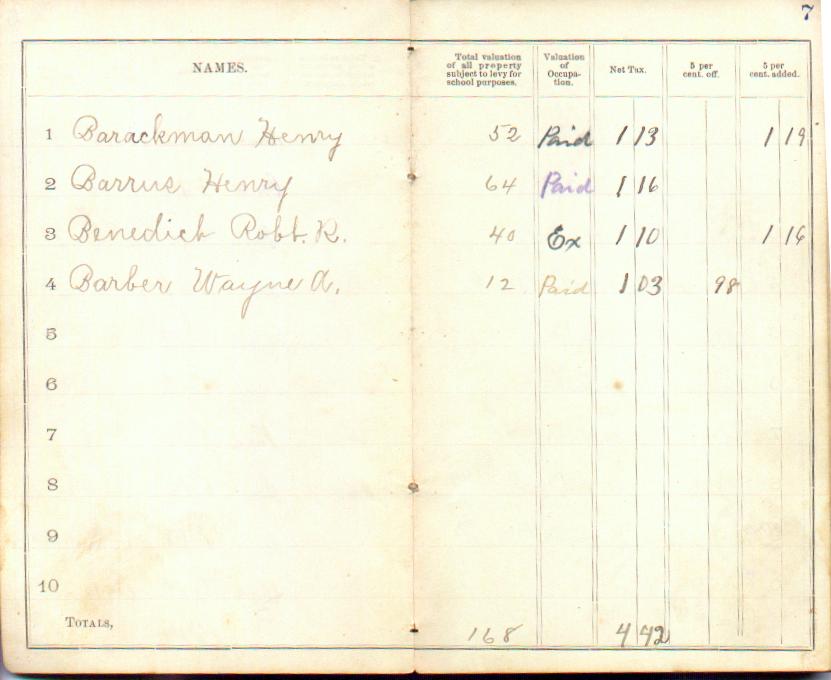 7
NAMES. Total valuation of all property subject to levy for school purposes. Valuation of Occupa-tion. Net Tax. 5 per cent. off. 5 per cent. added.
1 Barackman Henry 52 Paid 1 13 1 19
2 Barrus Henry 64 Paid 1 16
3 Benedict Robt. R. 40 Ex 1 10 1 16
4 Barber Wayne A. 12 Paid 1 03 98
5
6
7
8
9
10
TOTALS, 168 4 42